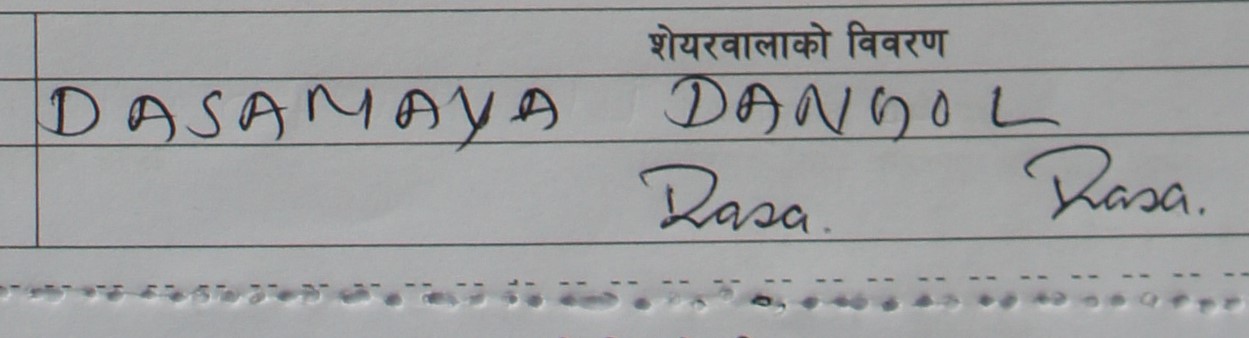 शेयरवालाको विवरण
DASAMAYA DANGOL
Dasa. Dasa.